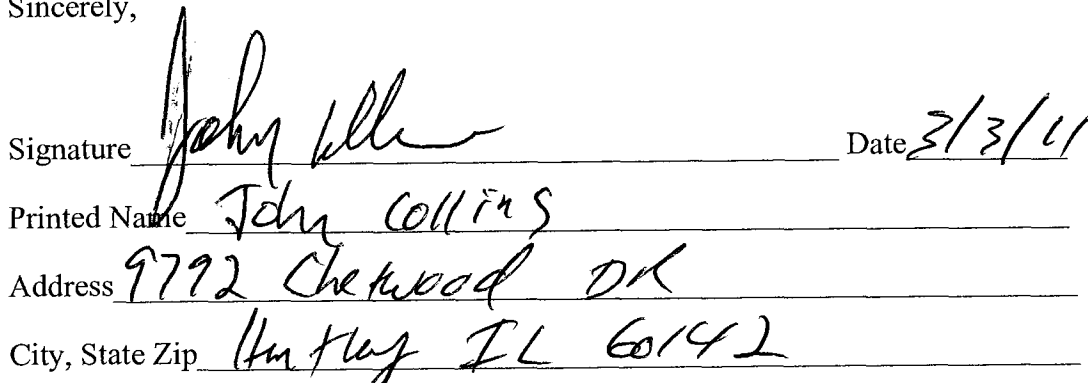 Sincerely,
Signature John Date 3/3/11
Printed Name John Collins
Address 9792 DR
City, State Zip Huntley IL 60142